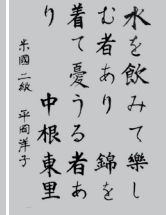 水を飲みて樂し
む者あり 錦を
着て憂うる者あ
り 中根東里
米國 二級 平岡洋子